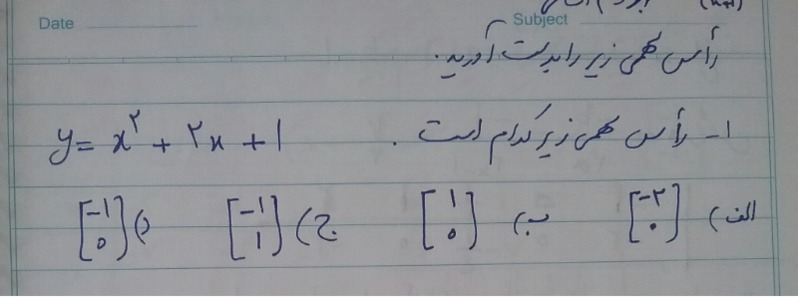 Date Subject
رأس سهمی زیر را بدست آورید.
۱- رأس سهمی زیر کدام است. y = x^۲ + ۲x + 1
الف) [-۲ ۰] ب) [1 0] ج) [-1 1] د) [-1 0]